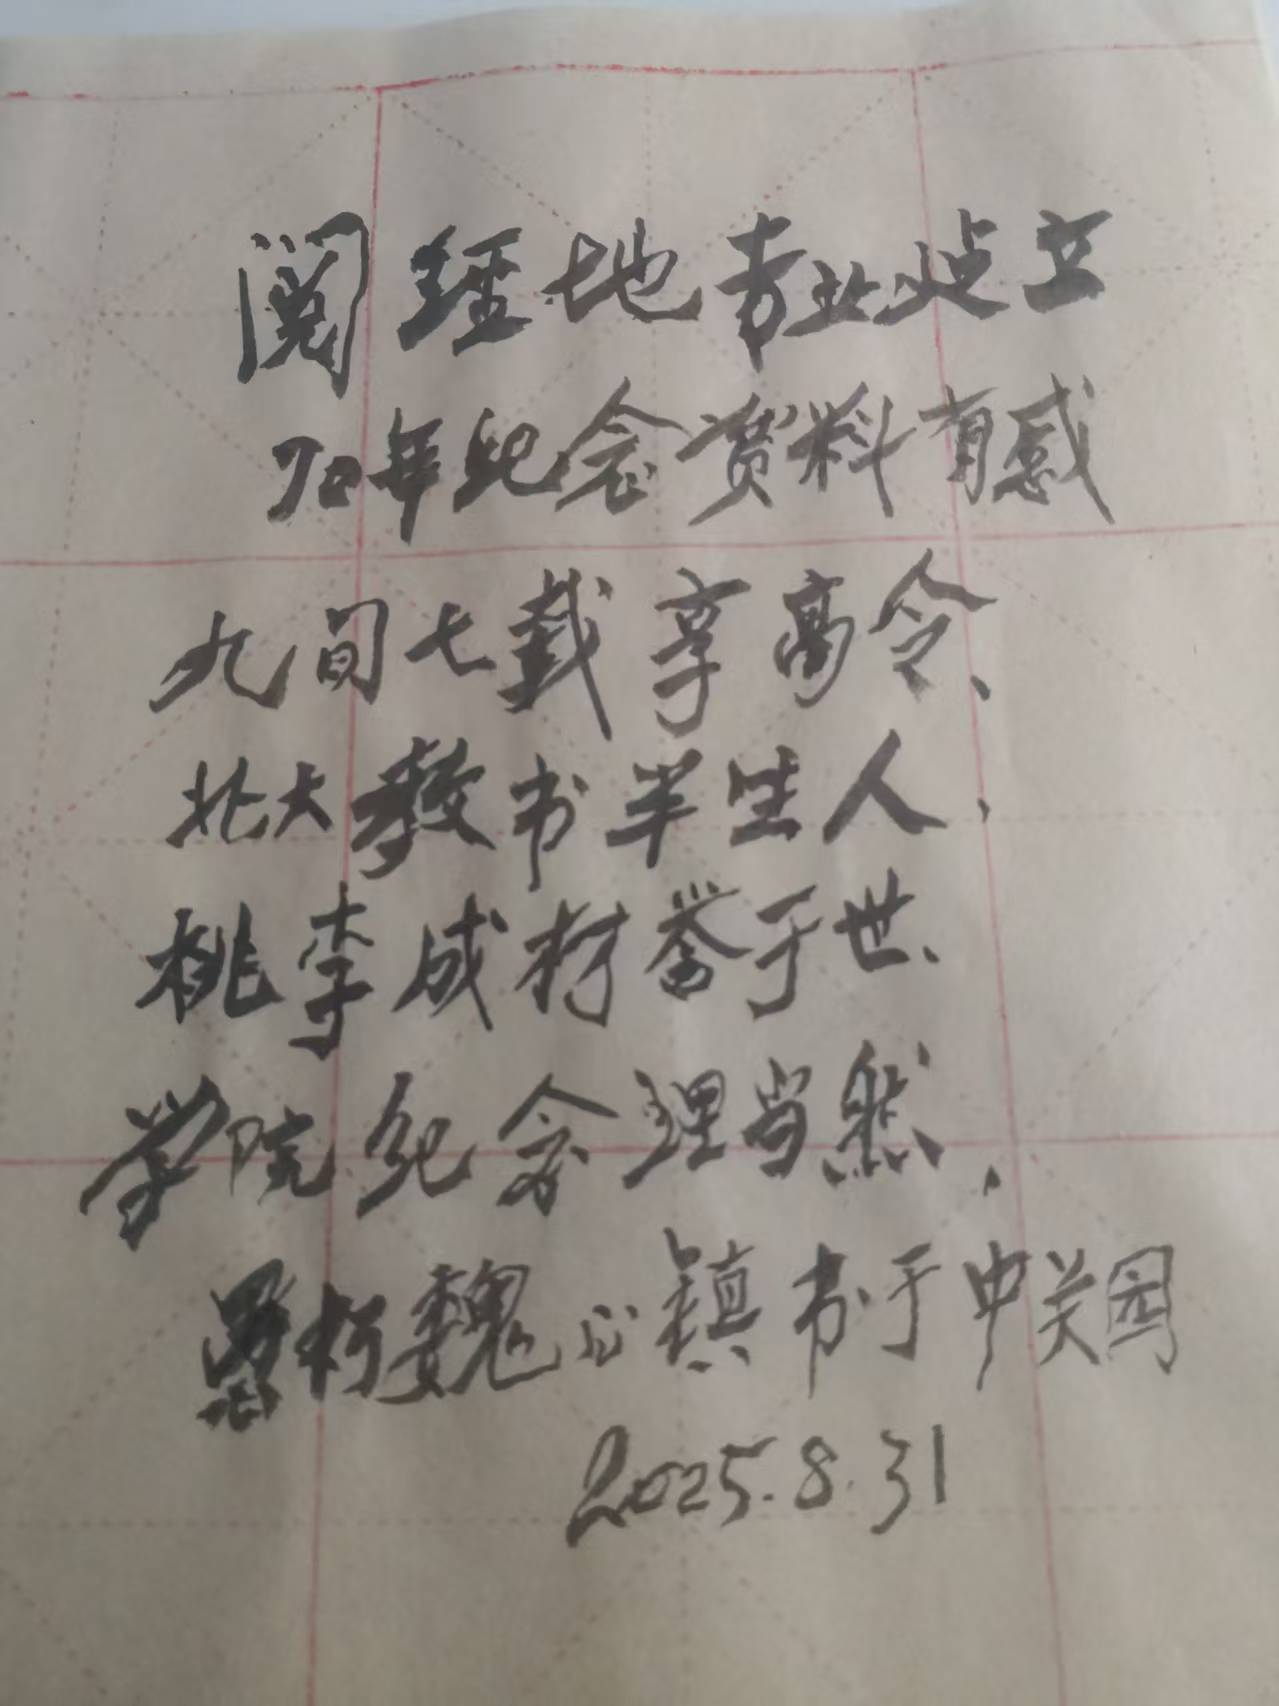 阅经地专业建立
70年纪念资料有感
九旬七载享高令、
北大教书半生人，
桃李成材誉于世、
学院纪念理当然，
魏心镇书于中关园
2025.8.31